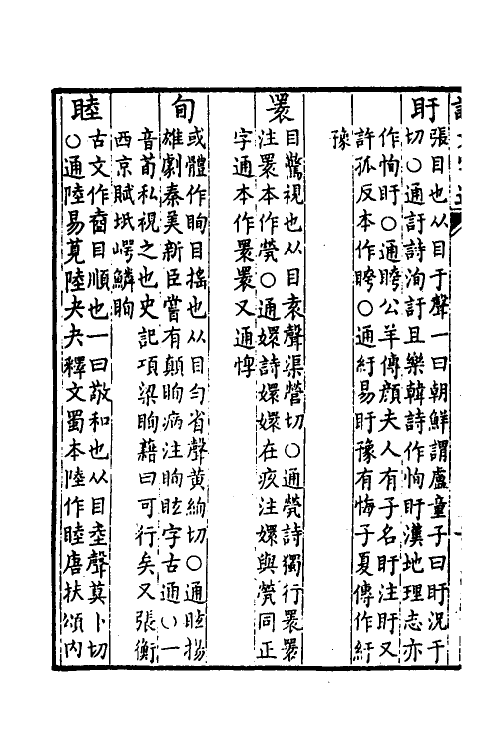 盱
張目也从目于聲一曰朝鮮謂盧童子曰盱況于
切○通訏詩洵訏且樂韓詩作恂盱漢地理志亦
作恂盱○通䀢公羊傳顏夫人有子名盱注盱又
許孤反本作䀢○通紆易盱豫有悔子夏傳作紆
豫
瞏
目驚視也从目袁聲渠營切○通煢詩獨行瞏瞏
注瞏本作煢○通嬛詩嬛嬛在疚注嬛與煢同正
字通本作瞏瞏又通惸
旬
或體作眴目搖也从目勻省聲黃絢切○通眩揚
雄劇秦美新臣嘗有顛眴病注眴眩字古通○一
音荀私視之也史記項梁眴藉曰可行矣又張衡
西京賦坻崿鱗眴
睦
古文作目順也一曰敬和也从目坴聲莫卜切
○通陸易莧陸夬夬釋文蜀本陸作睦唐扶頌内